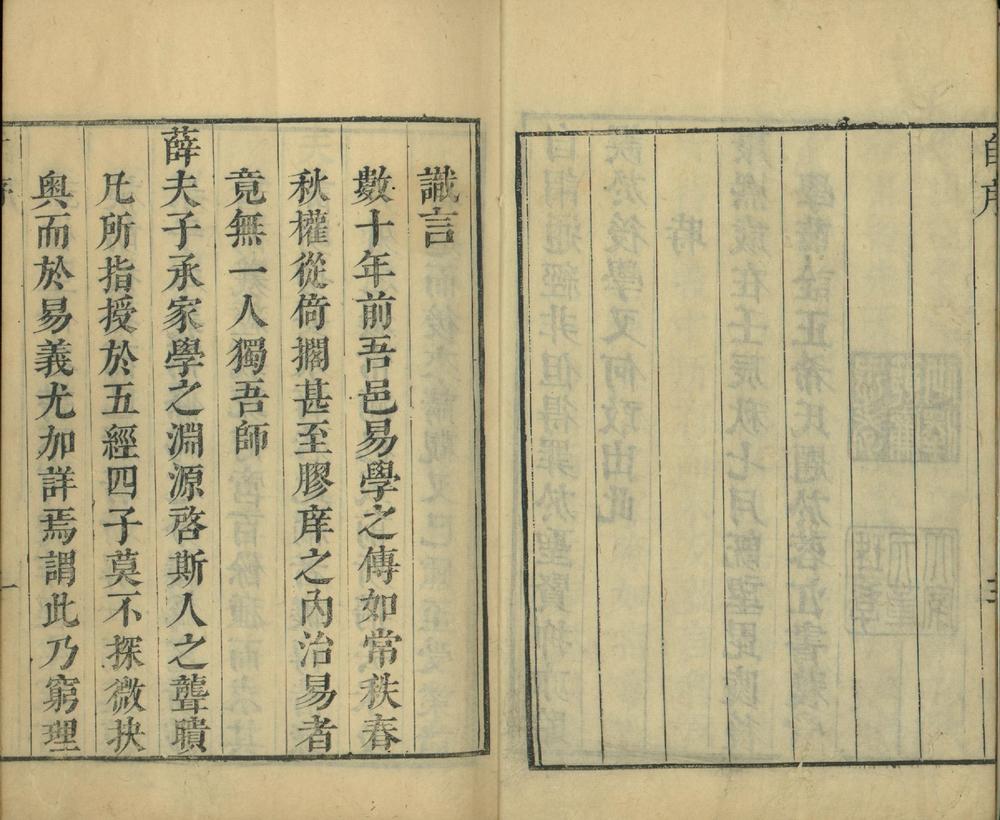 識言
數十年前吾邑易學之傳如常秩春
秋權從倚擱甚至膠庠之內治易者
竟無一人獨吾師
薛夫子承家學之淵源啓斯人之聾聵
凡所指授於五經四子莫不探微抉
奧而於易義尤加詳焉謂此乃窮理